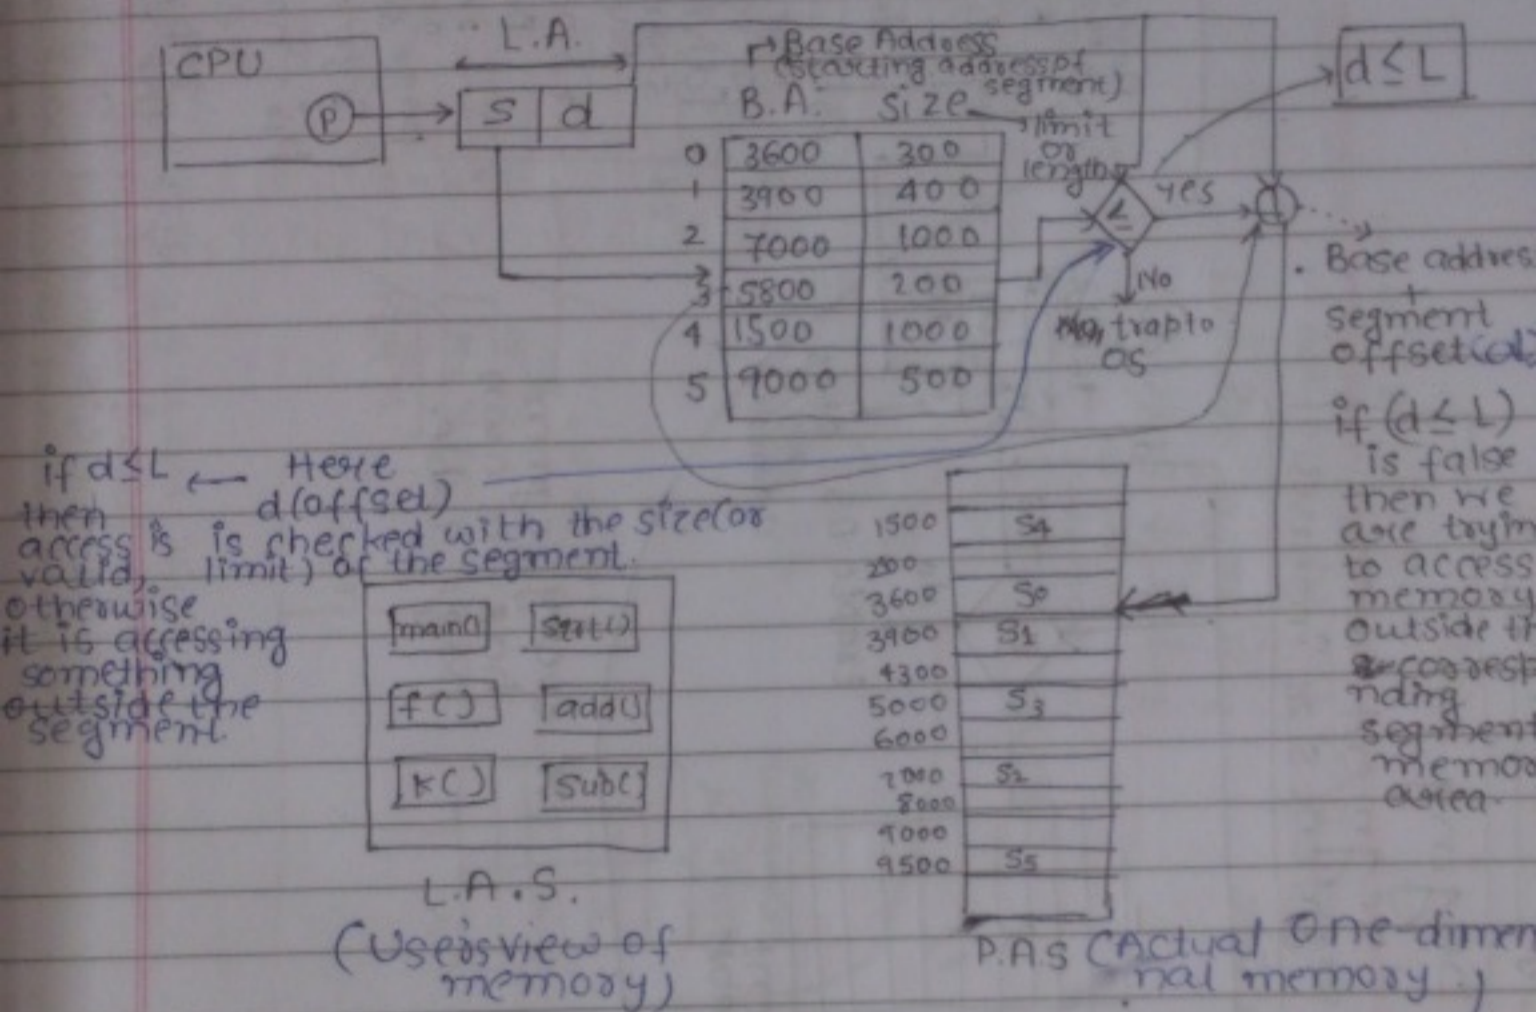 CPU
P
L.A.
s d
Base Address
(starting address of
segment)
B.A. size
limit
or
length
0 3600 300
1 3900 400
2 7000 1000
3 5800 200
4 1500 1000
5 9000 500
≤
yes
No
trap to
OS
d ≤ L
Base addres
+
segment
offset(d)
if (d ≤ L)
is false
then we
are tryin
to access
memory
outside t
corresp
nding
segment
memor
area.
if d ≤ L ← Here
then d(offset)
access is is checked with the size(or
valid, limit) of the segment.
otherwise
it is accessing
something
outside the
segment
main() sqrt()
f() add()
K() sub()
L.A.S.
(User's view of
memory)
1500 S4
3600 S0
3900 S1
4300
5000 S3
6000
7000 S2
8000
9000
9500 S5
P.A.S (Actual One-dimen
nal memory.)